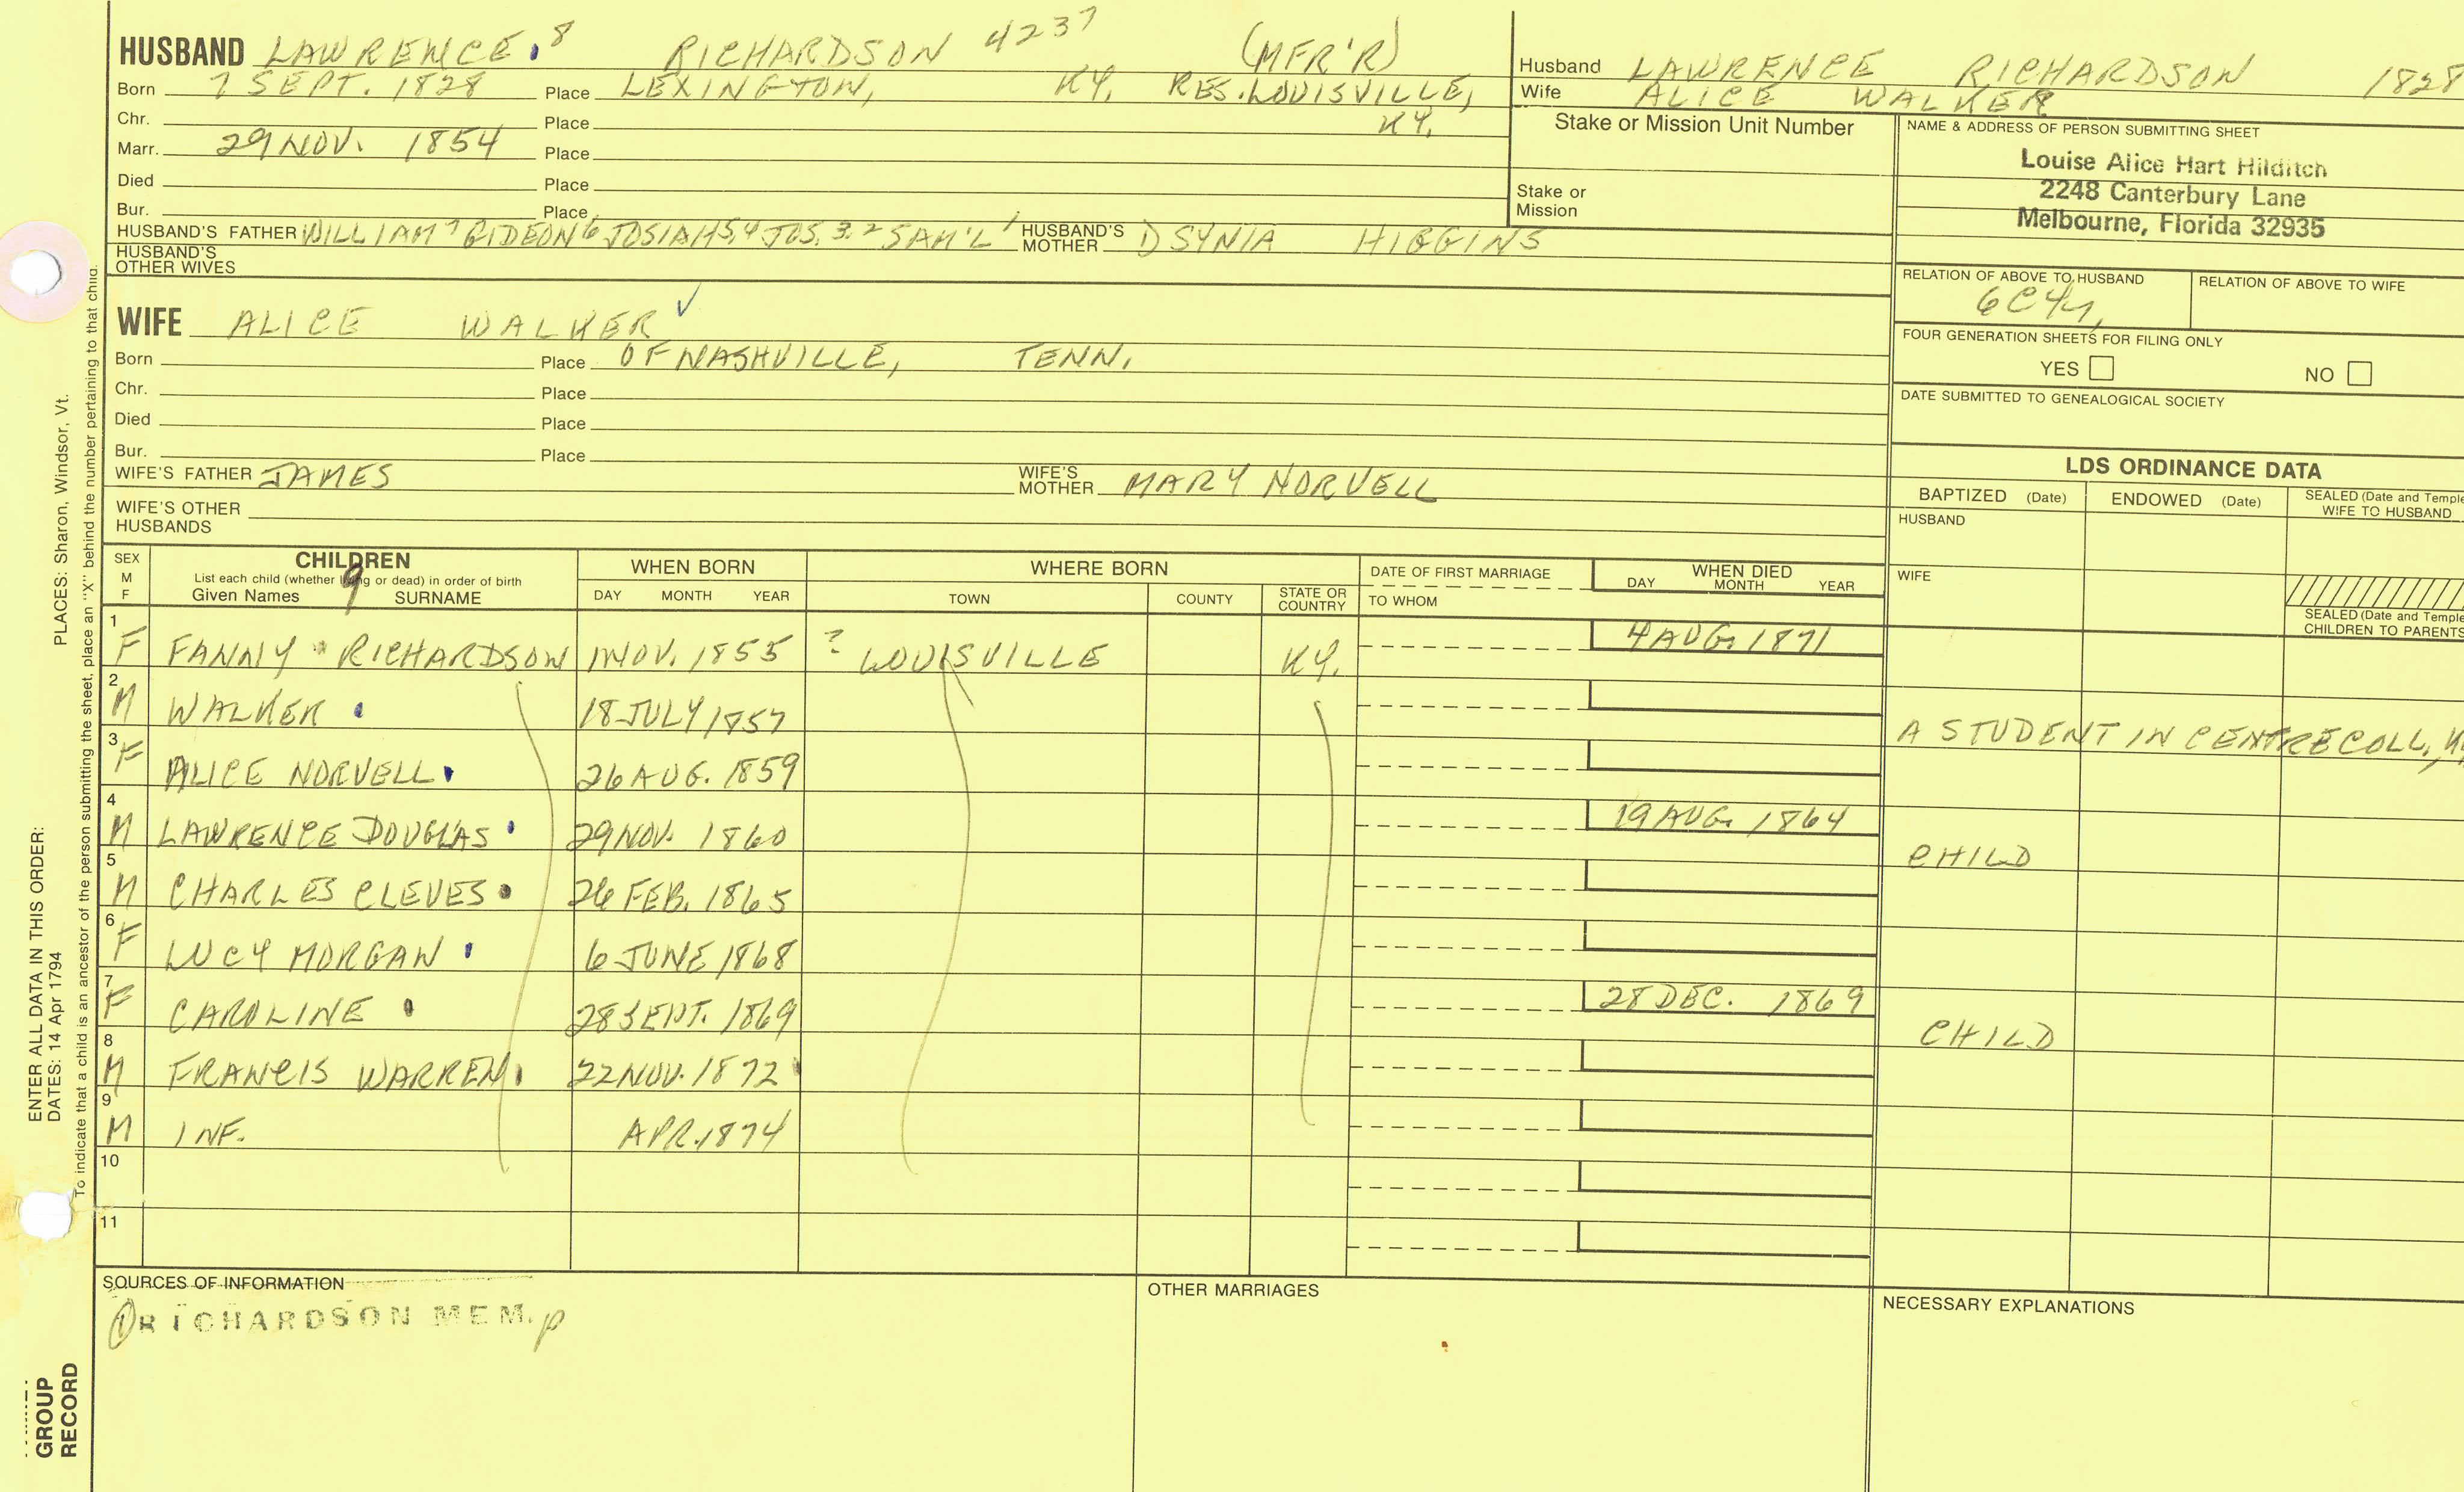 HUSBAND LAWRENCE 8 RICHARDSON 4237 (MFR'R)
Born 7 SEPT. 1828 Place LEXINGTON, KY. RES. LOUISVILLE,
Chr. Place KY.
Marr. 29 NOV. 1854 Place
Died Place
Bur. Place
HUSBAND'S FATHER WILLIAM 7 GIDEON 6 JOSIAH 5,4 JOS. 3.2 SAM'L 1 HUSBAND'S MOTHER DSYNIA HIGGINS
HUSBAND'S OTHER WIVES
Husband LAWRENCE RICHARDSON 1828
Wife ALICE WALKER
Stake or Mission Unit Number
Stake or
Mission
NAME & ADDRESS OF PERSON SUBMITTING SHEET
Louise Alice Hart Hilditch
2248 Canterbury Lane
Melbourne, Florida 32935
RELATION OF ABOVE TO HUSBAND RELATION OF ABOVE TO WIFE
FOUR GENERATION SHEETS FOR FILING ONLY
YES NO
DATE SUBMITTED TO GENEALOGICAL SOCIETY
WIFE ALICE WALKER ✓
Born Place OF NASHVILLE, TENN.
Chr. Place
Died Place
Bur. Place
WIFE'S FATHER JAMES WIFE'S MOTHER MARY NORVELL
WIFE'S OTHER
HUSBANDS
LDS ORDINANCE DATA
BAPTIZED (Date) ENDOWED (Date) SEALED (Date and Temple
WIFE TO HUSBAND
HUSBAND
WIFE
SEALED (Date and Temple
CHILDREN TO PARENTS
SEX
M
F
CHILDREN
List each child (whether living or dead) in order of birth
Given Names 9 SURNAME
WHEN BORN
DAY MONTH YEAR
WHERE BORN
TOWN COUNTY STATE OR COUNTRY
DATE OF FIRST MARRIAGE
TO WHOM
WHEN DIED
DAY MONTH YEAR
1 F FANNY RICHARDSON 1 NOV. 1855 ? LOUISVILLE KY. 4 AUG. 1871
2 M WALKER 18 JULY 1857 A STUDENT IN CENTRE COLL.,
3 F ALICE NORVELL 26 AUG. 1859
4 M LAWRENCE DOUGLAS 29 NOV. 1860 19 AUG. 1864 CHILD
5 M CHARLES CLEVES 26 FEB. 1865
6 F LUCY MORGAN 6 JUNE 1868
7 F CAROLINE 28 SEPT. 1869 28 DEC. 1869 CHILD
8 M FRANCIS WARREN 22 NOV. 1872
9 M INF. APR. 1874
10
11
SOURCES OF INFORMATION
① RICHARDSON MEM. p
OTHER MARRIAGES
NECESSARY EXPLANATIONS
PLACES: Sharon, Windsor, Vt.
To indicate that a child is an ancestor of the person submitting the sheet, place an "X" behind the number pertaining to that child.
ENTER ALL DATA IN THIS ORDER:
DATES: 14 Apr 1794
GROUP
RECORD